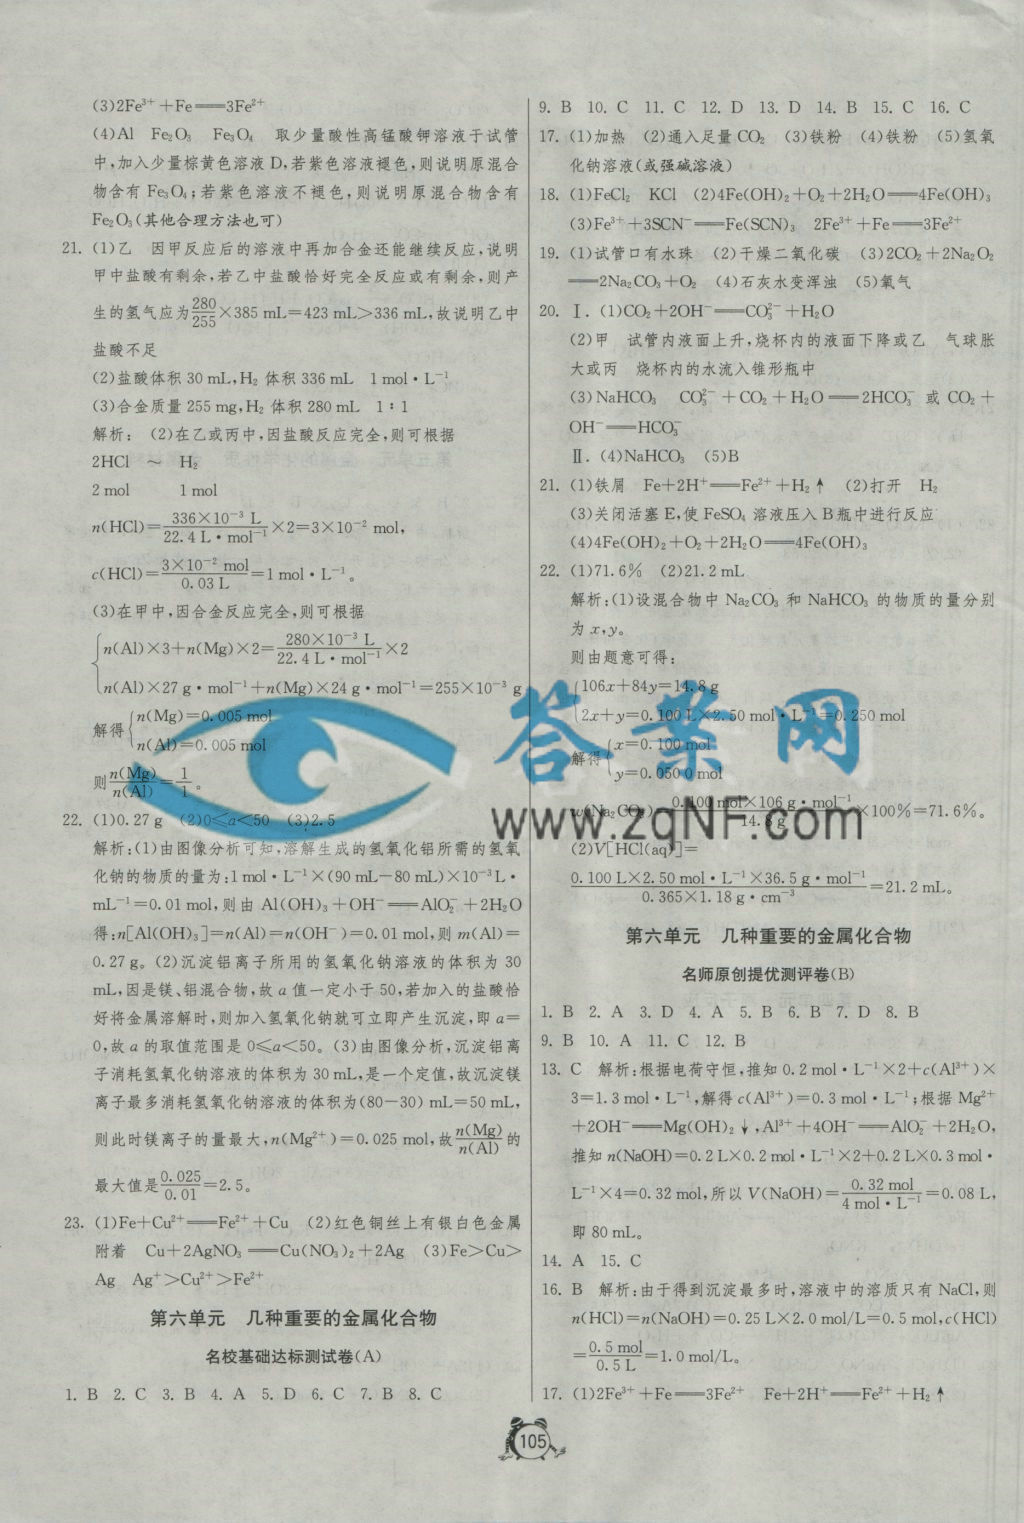 (3)2Fe³⁺+Fe══3Fe²⁺
(4)Al Fe₂O₃ Fe₃O₄ 取少量酸性高锰酸钾溶液于试管
中,加入少量棕黄色溶液D,若紫色溶液褪色,则说明原混合
物含有Fe₃O₄;若紫色溶液不褪色,则说明原混合物含有
Fe₂O₃(其他合理方法也可)
21. (1)乙 因甲反应后的溶液中再加合金还能继续反应,说明
甲中盐酸有剩余,若乙中盐酸恰好完全反应或有剩余,则产
生的氢气应为280/255×385 mL=423 mL>336 mL,故说明乙中
盐酸不足
(2)盐酸体积30 mL,H₂体积336 mL 1 mol·L⁻¹
(3)合金质量255 mg,H₂体积280 mL 1∶1
解析:(2)在乙或丙中,因盐酸反应完全,则可根据
2HCl ~ H₂
2 mol 1 mol
n(HCl)=336×10⁻³ L/22.4 L·mol⁻¹×2=3×10⁻² mol,
c(HCl)=3×10⁻² mol/0.03 L=1 mol·L⁻¹。
(3)在甲中,因合金反应完全,则可根据
{n(Al)×3+n(Mg)×2=280×10⁻³ L/22.4 L·mol⁻¹×2
n(Al)×27 g·mol⁻¹+n(Mg)×24 g·mol⁻¹=255×10⁻³ g
解得{n(Mg)=0.005 mol
n(Al)=0.005 mol
则n(Mg)/n(Al)=1/1。
22. (1)0.27 g (2)0≤a<50 (3)2.5
解析:(1)由图像分析可知,溶解生成的氢氧化铝所需的氢氧
化钠的物质的量为:1 mol·L⁻¹×(90 mL−80 mL)×10⁻³ L·
mL⁻¹=0.01 mol,则由Al(OH)₃+OH⁻══AlO₂⁻+2H₂O
得:n[Al(OH)₃]=n(Al)=n(OH⁻)=0.01 mol,则m(Al)=
0.27 g。(2)沉淀铝离子所用的氢氧化钠溶液的体积为30
mL,因是镁、铝混合物,故a值一定小于50,若加入的盐酸恰
好将金属溶解时,则加入氢氧化钠就可立即产生沉淀,即a=
0,故a的取值范围是0≤a<50。(3)由图像分析,沉淀铝离
子消耗氢氧化钠溶液的体积为30 mL,是一个定值,故沉淀镁
离子最多消耗氢氧化钠溶液的体积为(80−30) mL=50 mL,
则此时镁离子的量最大,n(Mg²⁺)=0.025 mol,故n(Mg)/n(Al)的
最大值是0.025/0.01=2.5。
23. (1)Fe+Cu²⁺══Fe²⁺+Cu (2)红色铜丝上有银白色金属
附着 Cu+2AgNO₃══Cu(NO₃)₂+2Ag (3)Fe>Cu>
Ag Ag⁺>Cu²⁺>Fe²⁺
第六单元 几种重要的金属化合物
名校基础达标测试卷(A)
1. B 2. C 3. B 4. A 5. D 6. C 7. B 8. C
9. B 10. C 11. C 12. D 13. D 14. B 15. C 16. C
17. (1)加热 (2)通入足量CO₂ (3)铁粉 (4)铁粉 (5)氢氧
化钠溶液(或强碱溶液)
18. (1)FeCl₂ KCl (2)4Fe(OH)₂+O₂+2H₂O══4Fe(OH)₃
(3)Fe³⁺+3SCN⁻══Fe(SCN)₃ 2Fe³⁺+Fe══3Fe²⁺
19. (1)试管口有水珠 (2)干燥二氧化碳 (3)2CO₂+2Na₂O₂
══2Na₂CO₃+O₂ (4)石灰水变浑浊 (5)氧气
20. Ⅰ.(1)CO₂+2OH⁻══CO₃²⁻+H₂O
(2)甲 试管内液面上升,烧杯内的液面下降或乙 气球胀
大或丙 烧杯内的水流入锥形瓶中
(3)NaHCO₃ CO₃²⁻+CO₂+H₂O══2HCO₃⁻ 或 CO₂+
OH⁻══HCO₃⁻
Ⅱ.(4)NaHCO₃ (5)B
21. (1)铁屑 Fe+2H⁺══Fe²⁺+H₂↑ (2)打开 H₂
(3)关闭活塞E,使FeSO₄溶液压入B瓶中进行反应
(4)4Fe(OH)₂+O₂+2H₂O══4Fe(OH)₃
22. (1)71.6% (2)21.2 mL
解析:(1)设混合物中Na₂CO₃和NaHCO₃的物质的量分别
为x,y。
则由题意可得:
{106x+84y=14.8 g
2x+y=0.100 L×2.50 mol·L⁻¹=0.250 mol
解得{x=0.100 mol
y=0.050 0 mol
w(Na₂CO₃)=0.100 mol×106 g·mol⁻¹/14.8 g×100%=71.6%。
(2)V[HCl(aq)]=
0.100 L×2.50 mol·L⁻¹×36.5 g·mol⁻¹/0.365×1.18 g·cm⁻³=21.2 mL。
第六单元 几种重要的金属化合物
名师原创提优测评卷(B)
1. B 2. A 3. D 4. A 5. B 6. B 7. D 8. B
9. B 10. A 11. C 12. B
13. C 解析:根据电荷守恒,推知0.2 mol·L⁻¹×2+c(Al³⁺)×
3=1.3 mol·L⁻¹,解得c(Al³⁺)=0.3 mol·L⁻¹;根据Mg²⁺
+2OH⁻══Mg(OH)₂↓,Al³⁺+4OH⁻══AlO₂⁻+2H₂O,
推知n(NaOH)=0.2 L×0.2 mol·L⁻¹×2+0.2 L×0.3 mol·
L⁻¹×4=0.32 mol,所以V(NaOH)=0.32 mol/4 mol·L⁻¹=0.08 L,
即80 mL。
14. A 15. C
16. B 解析:由于得到沉淀最多时,溶液中的溶质只有NaCl,则
n(HCl)=n(NaOH)=0.25 L×2.0 mol/L=0.5 mol,c(HCl)
=0.5 mol/0.5 L=1.0 mol/L。
17. (1)2Fe³⁺+Fe══3Fe²⁺ Fe+2H⁺══Fe²⁺+H₂↑
105
答案网
www.zqNF.com